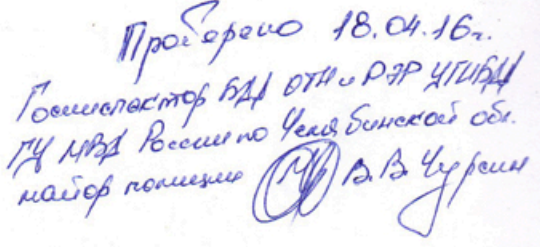 Проверено 18.04.16г.
Госинспектор БДД ОТН и РЭР УГИБДД
ГУ МВД России по Челябинской обл.
майор полиции В.В. Чурсин